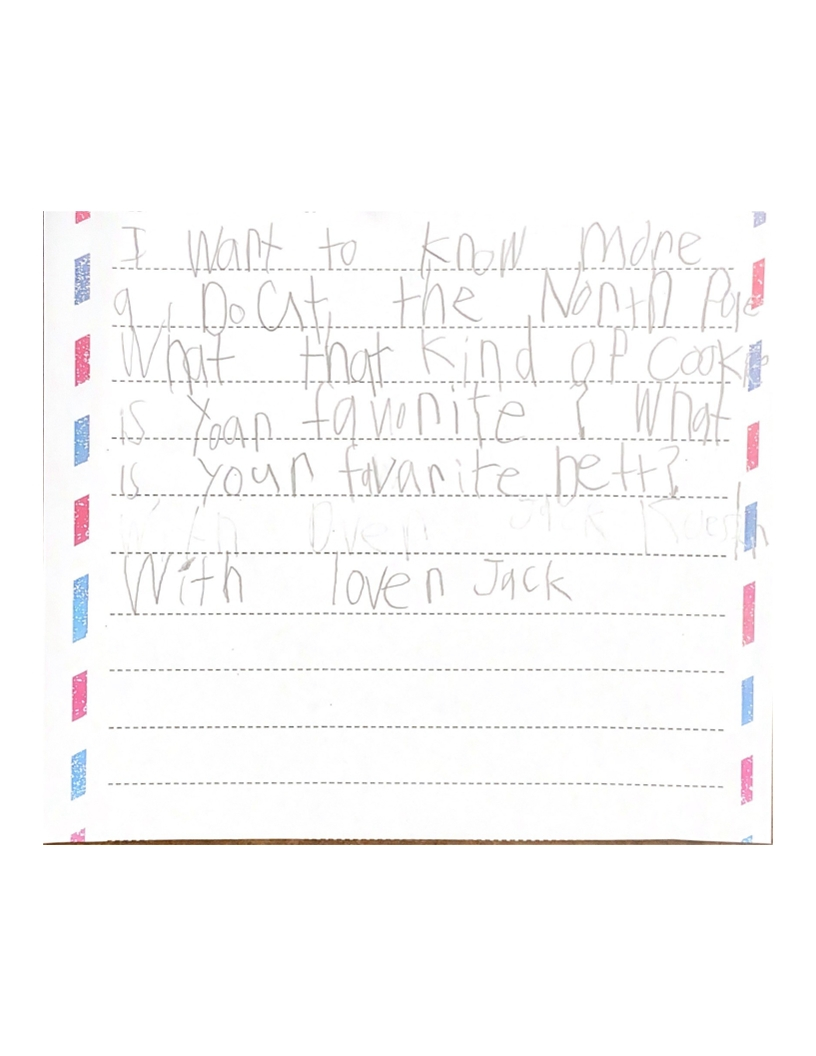 I want to know more
a Docut the North Pole
What that kind of cook
is Your favorite ? What
is your favarite pett?
With Jack
With loven Jack